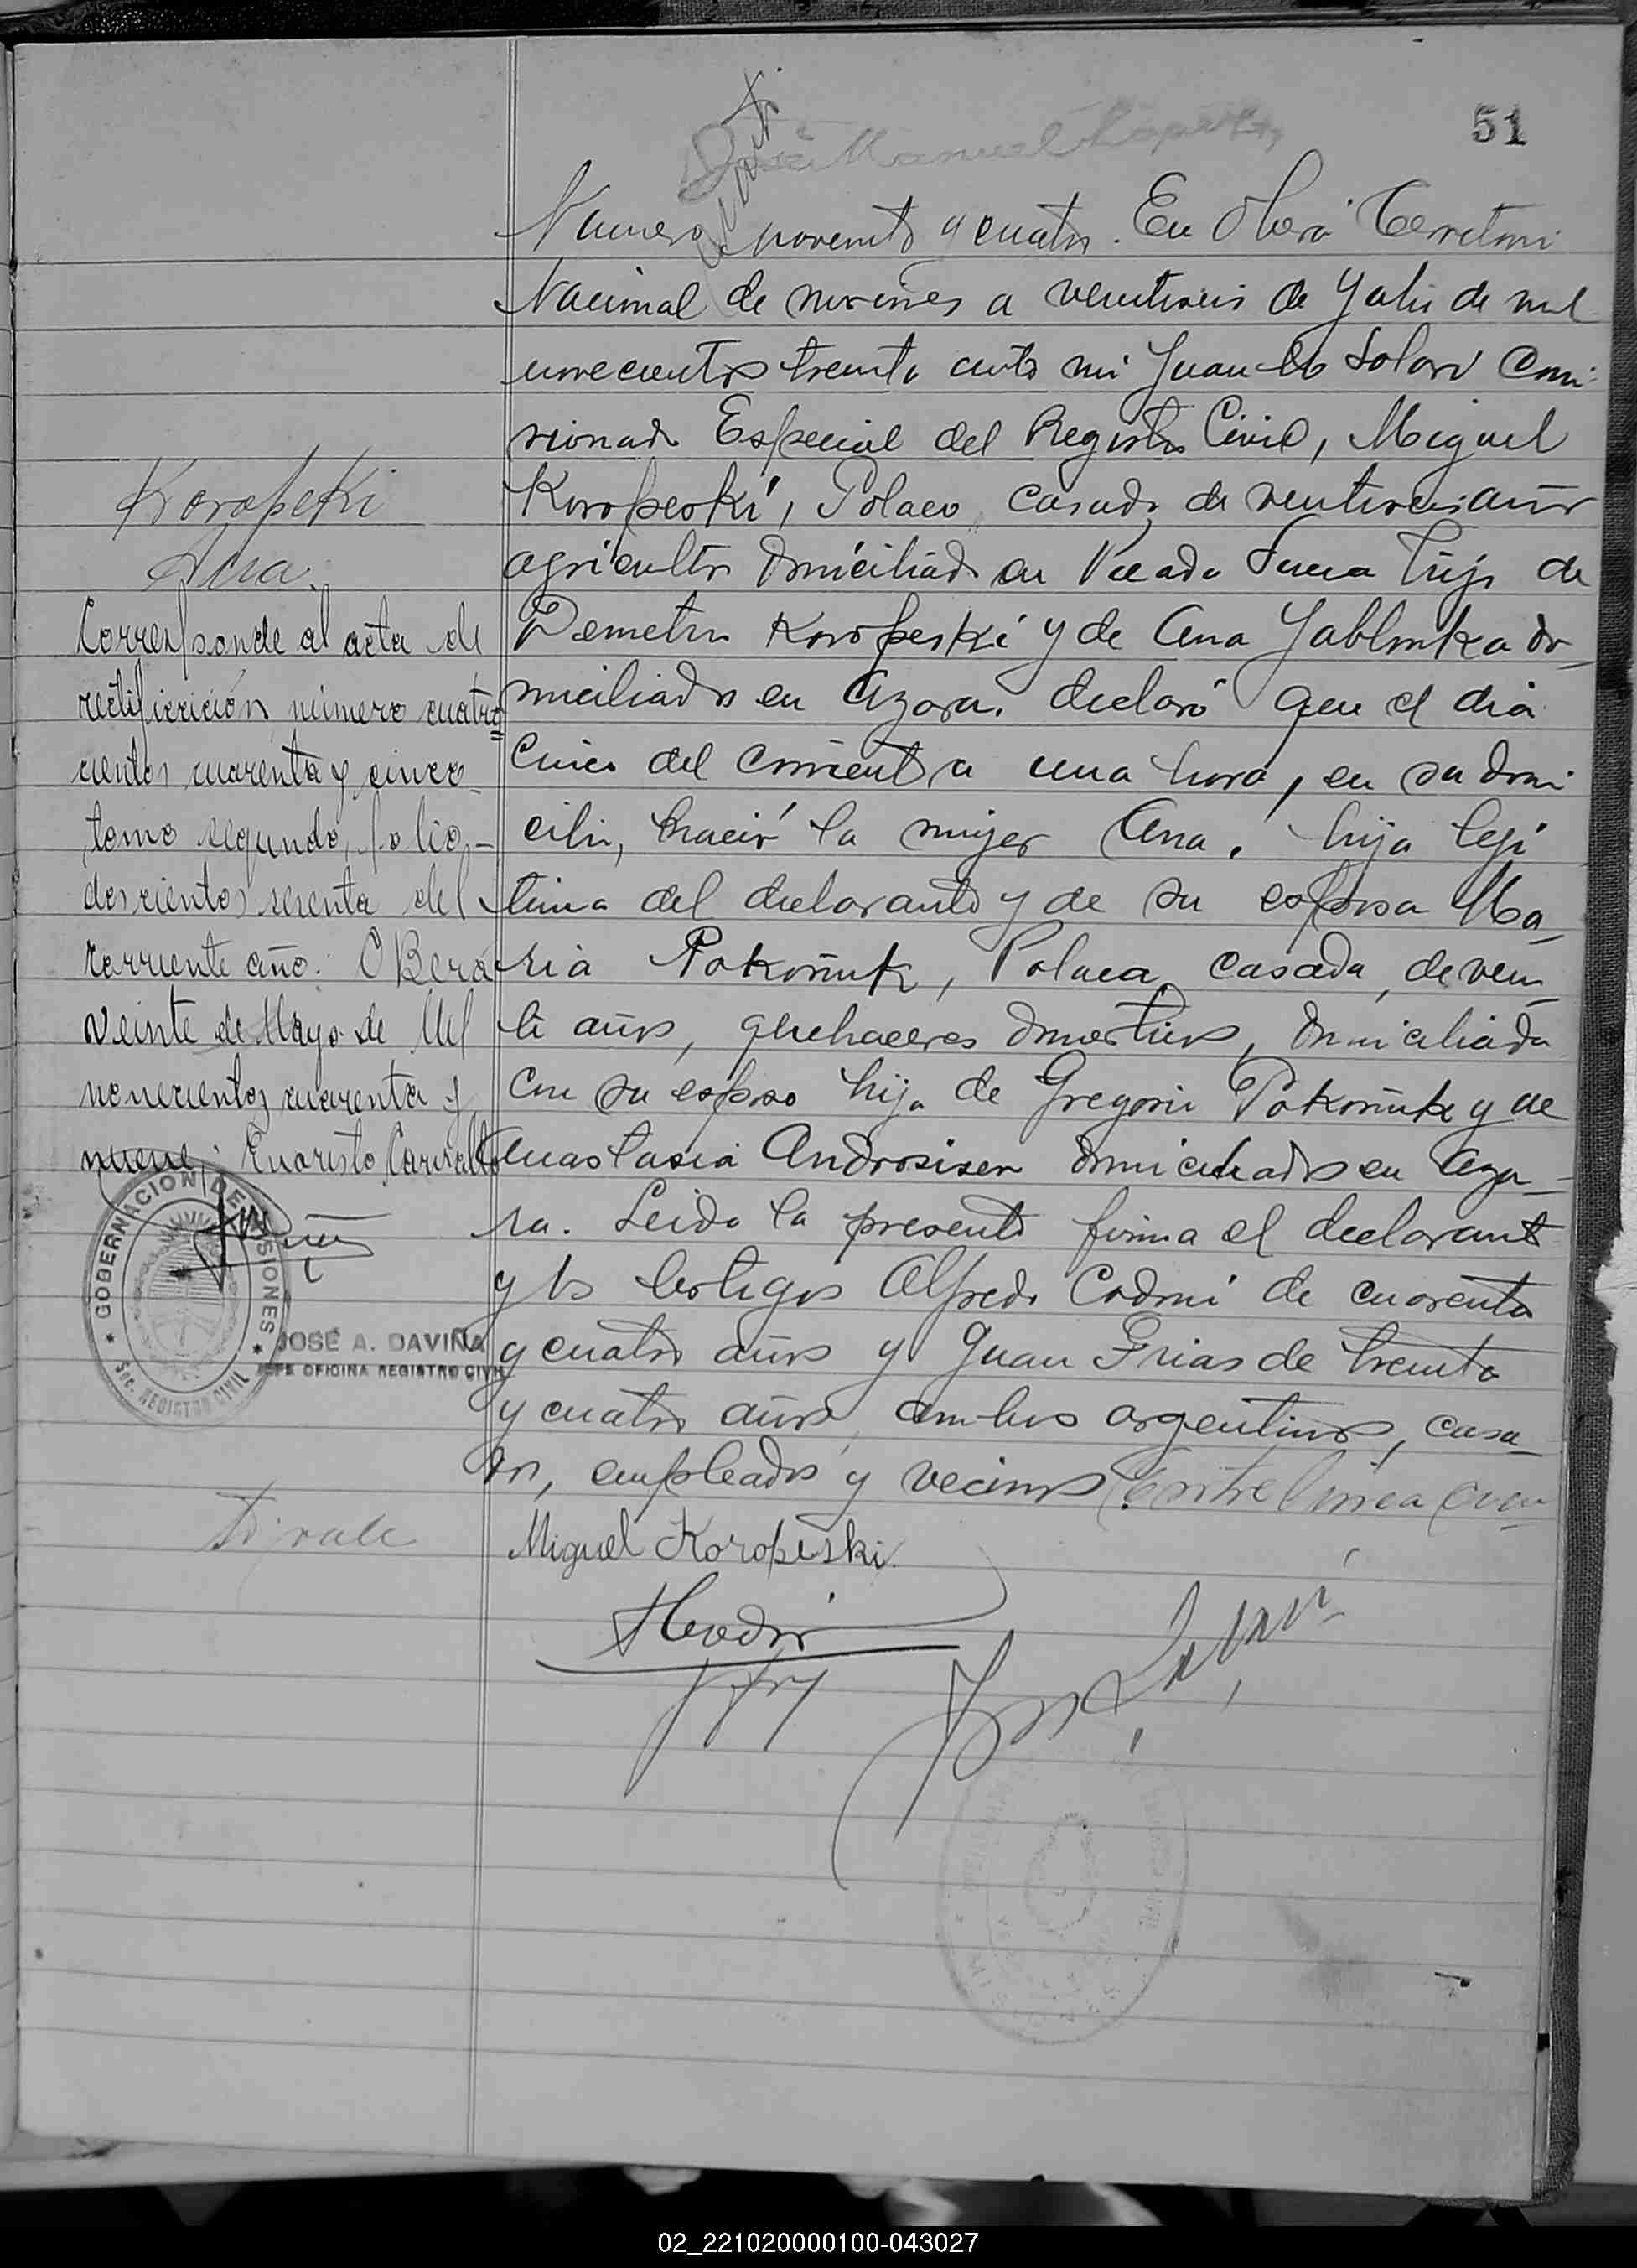 51
José Manuel
Numero noventa y cuatro. En Oberá Territorio
Nacional de misiones a veintiseis de Julio de mil
novecientos treinta ante mi Juan B Solari Comi-
sionado Especial del Registro Civil, Miguel
Koropeski, Polaco, casado, de veintiseis años
agricultor domiciliado en Picada Sueca hijo de
Demetrio Koropeski y de Ana Jablonka do-
miciliados en Azara. declaró que el dia
cinco del corriente a una hora, en su domi
cilio, nació la mujer Ana. hija legi
tima del declarante y de su esposa Ma-
ria Pokoñuk, Polaca, casada, de vein-
te años, quehaceres domesticos, domiciliada
con su esposo hija de Gregorio Pokoñuk y de
Anastasia Androsisen domiciliados en Aza-
ra. Leida la presente firma el declarante
y los testigos Alfredo Codoni de cuarenta
y cuatro años y Juan Frias de treinta
y cuatro años, ambos argentinos, casa-
dos, empleados y vecinos. Entre linea cua-
to vale
Miguel Koropeski
Koropeski
Ana.
Corresponde al acta de
rectificación número cuatro
cientos cuarenta y cinco
tomo segundo, folio-
doscientos sesenta del
corriente año. OBera
veinte de Mayo de Mil
novecientos cuarenta y
nueve. Evaristo Carvallo
GOBERNACION DE MISIONES
SEC. REGISTRO CIVIL
JOSÉ A. DAVIÑA
JEFE OFICINA REGISTRO CIVIL
02_221020000100-043027